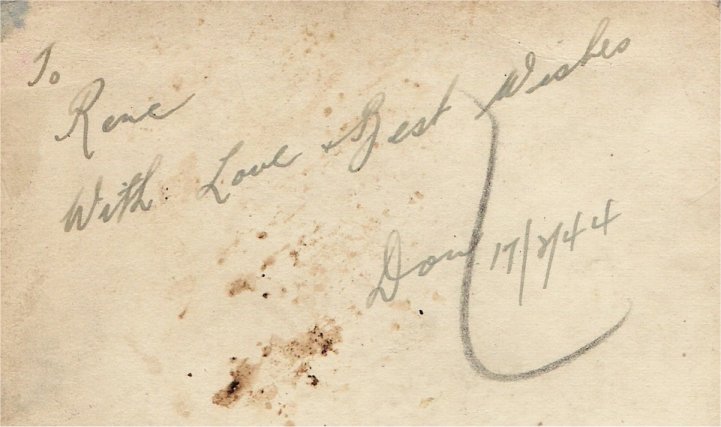 To
Rene
With Love & Best Wishes
Don 17/8/44